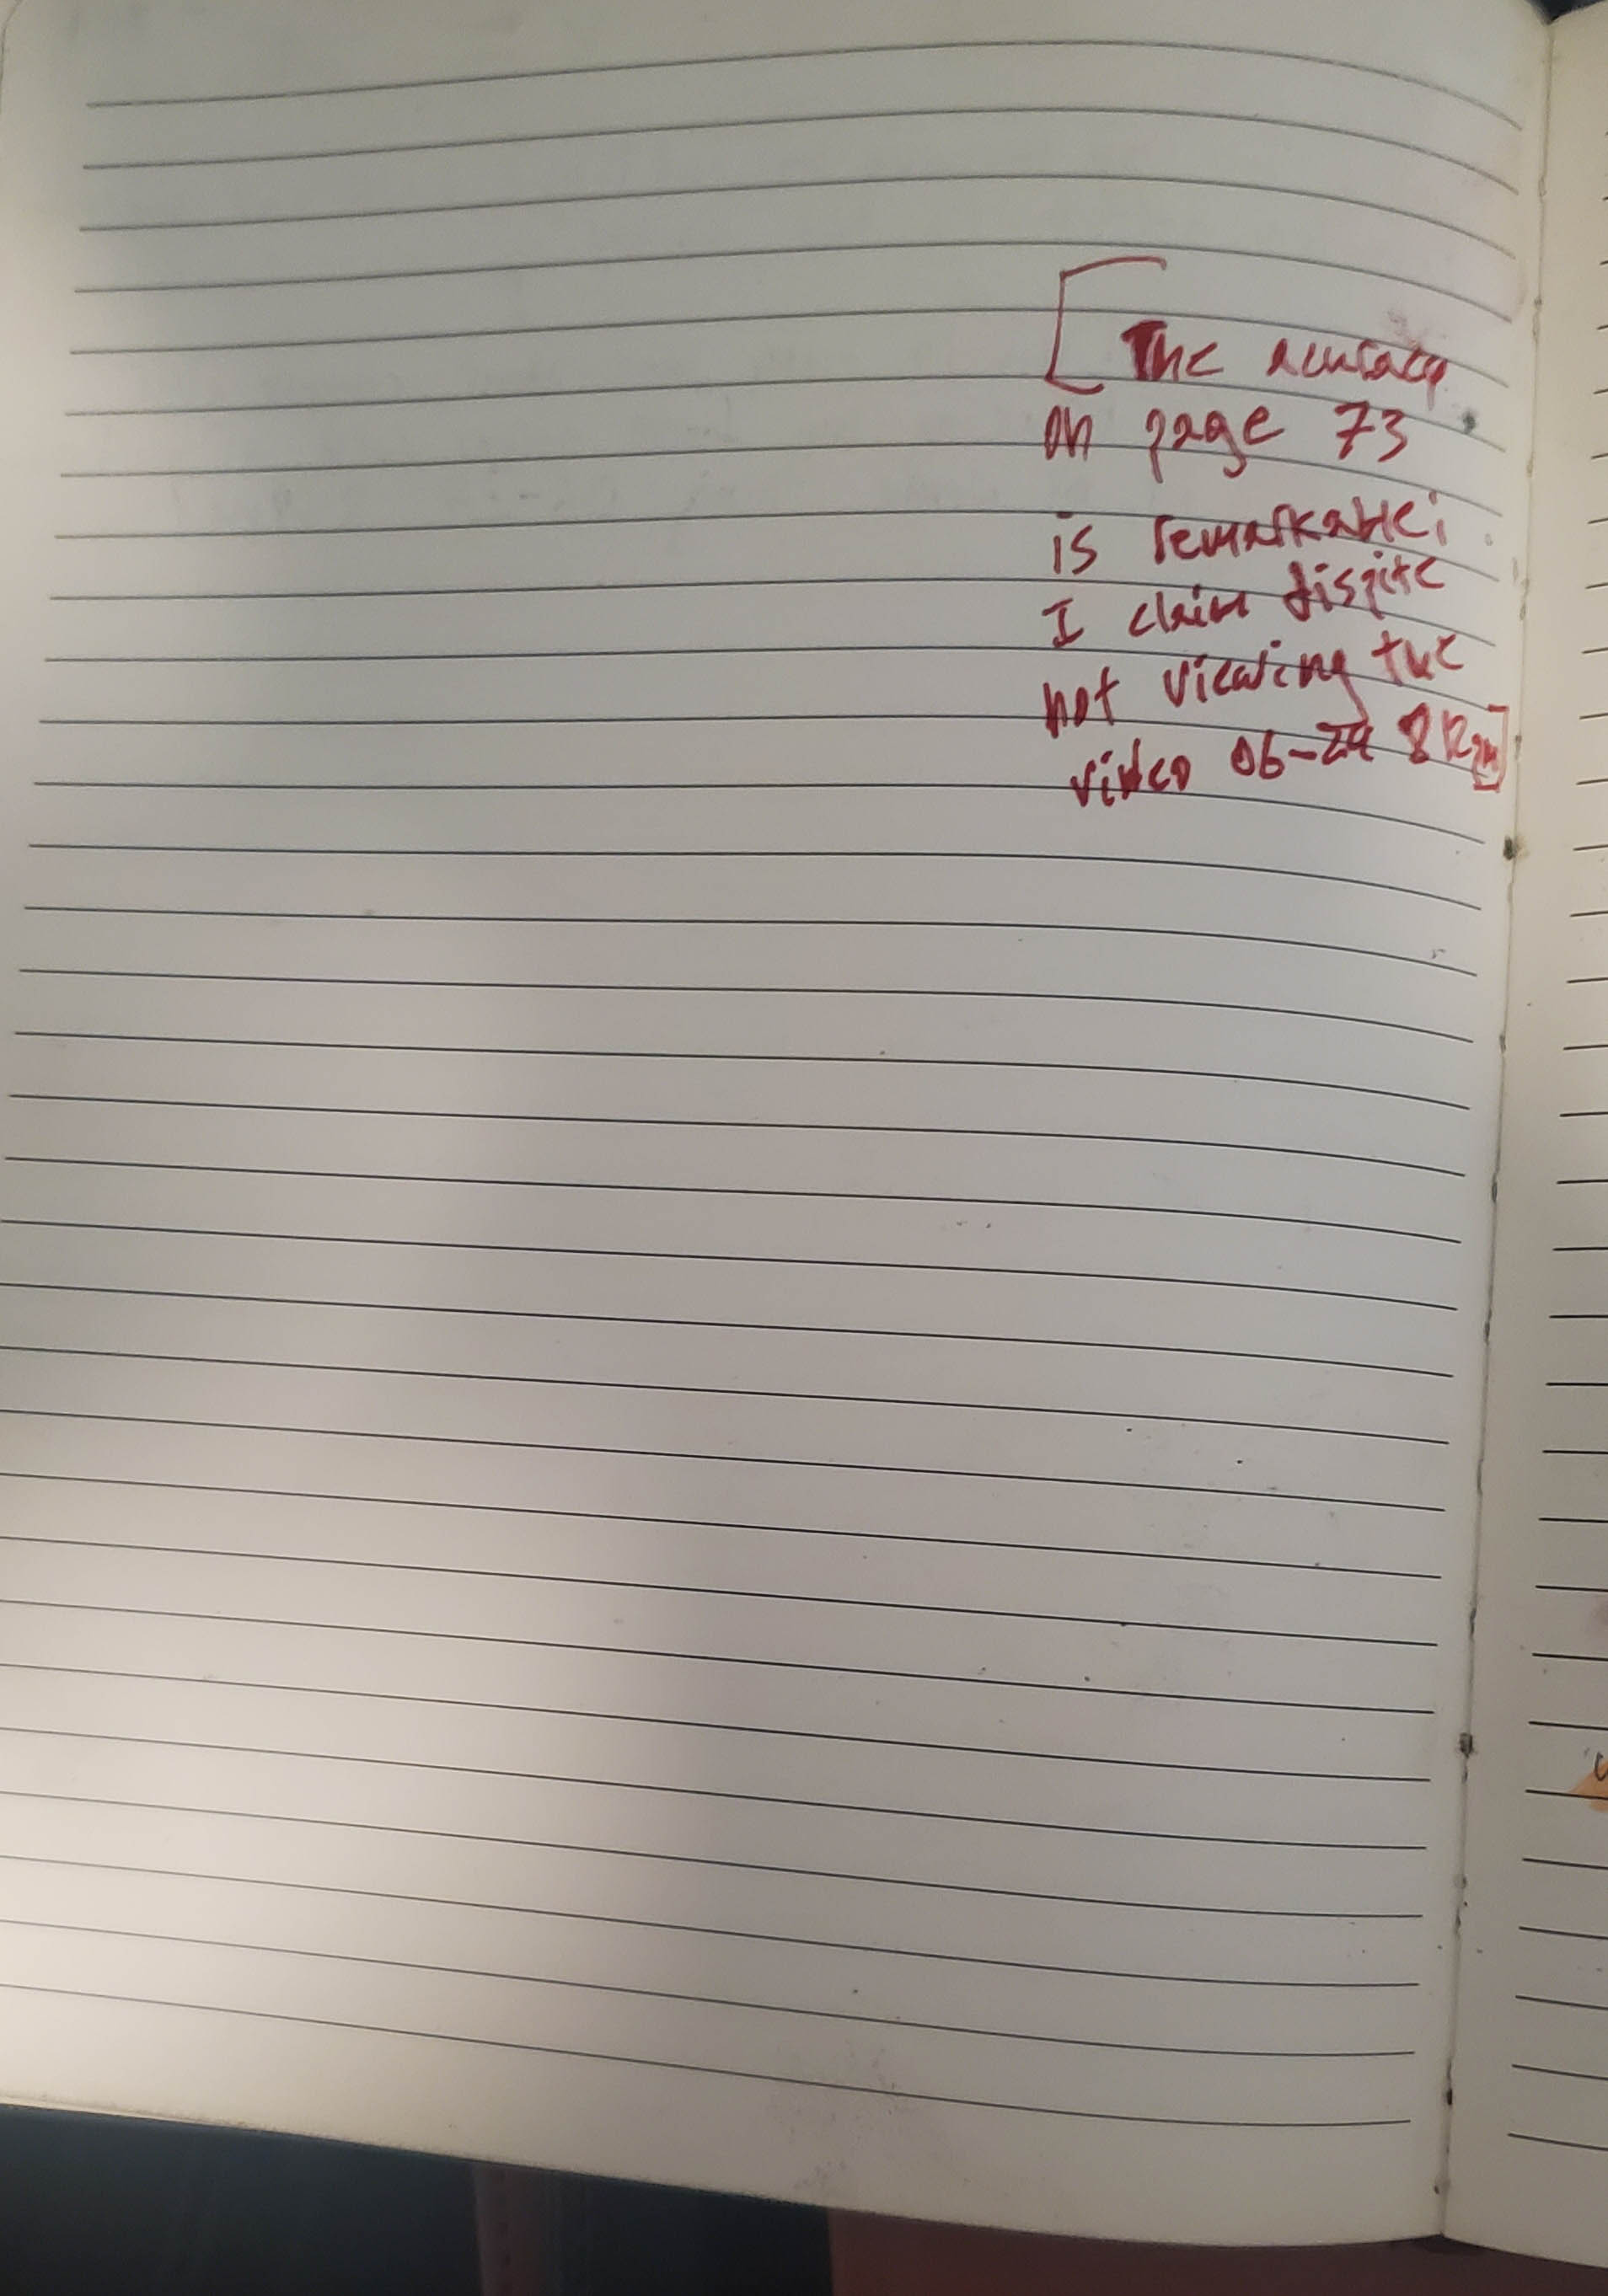 [The accuracy
on page 73
is remarkable;
I claim dispite
not viewing the
video 06-24 8 12pm]